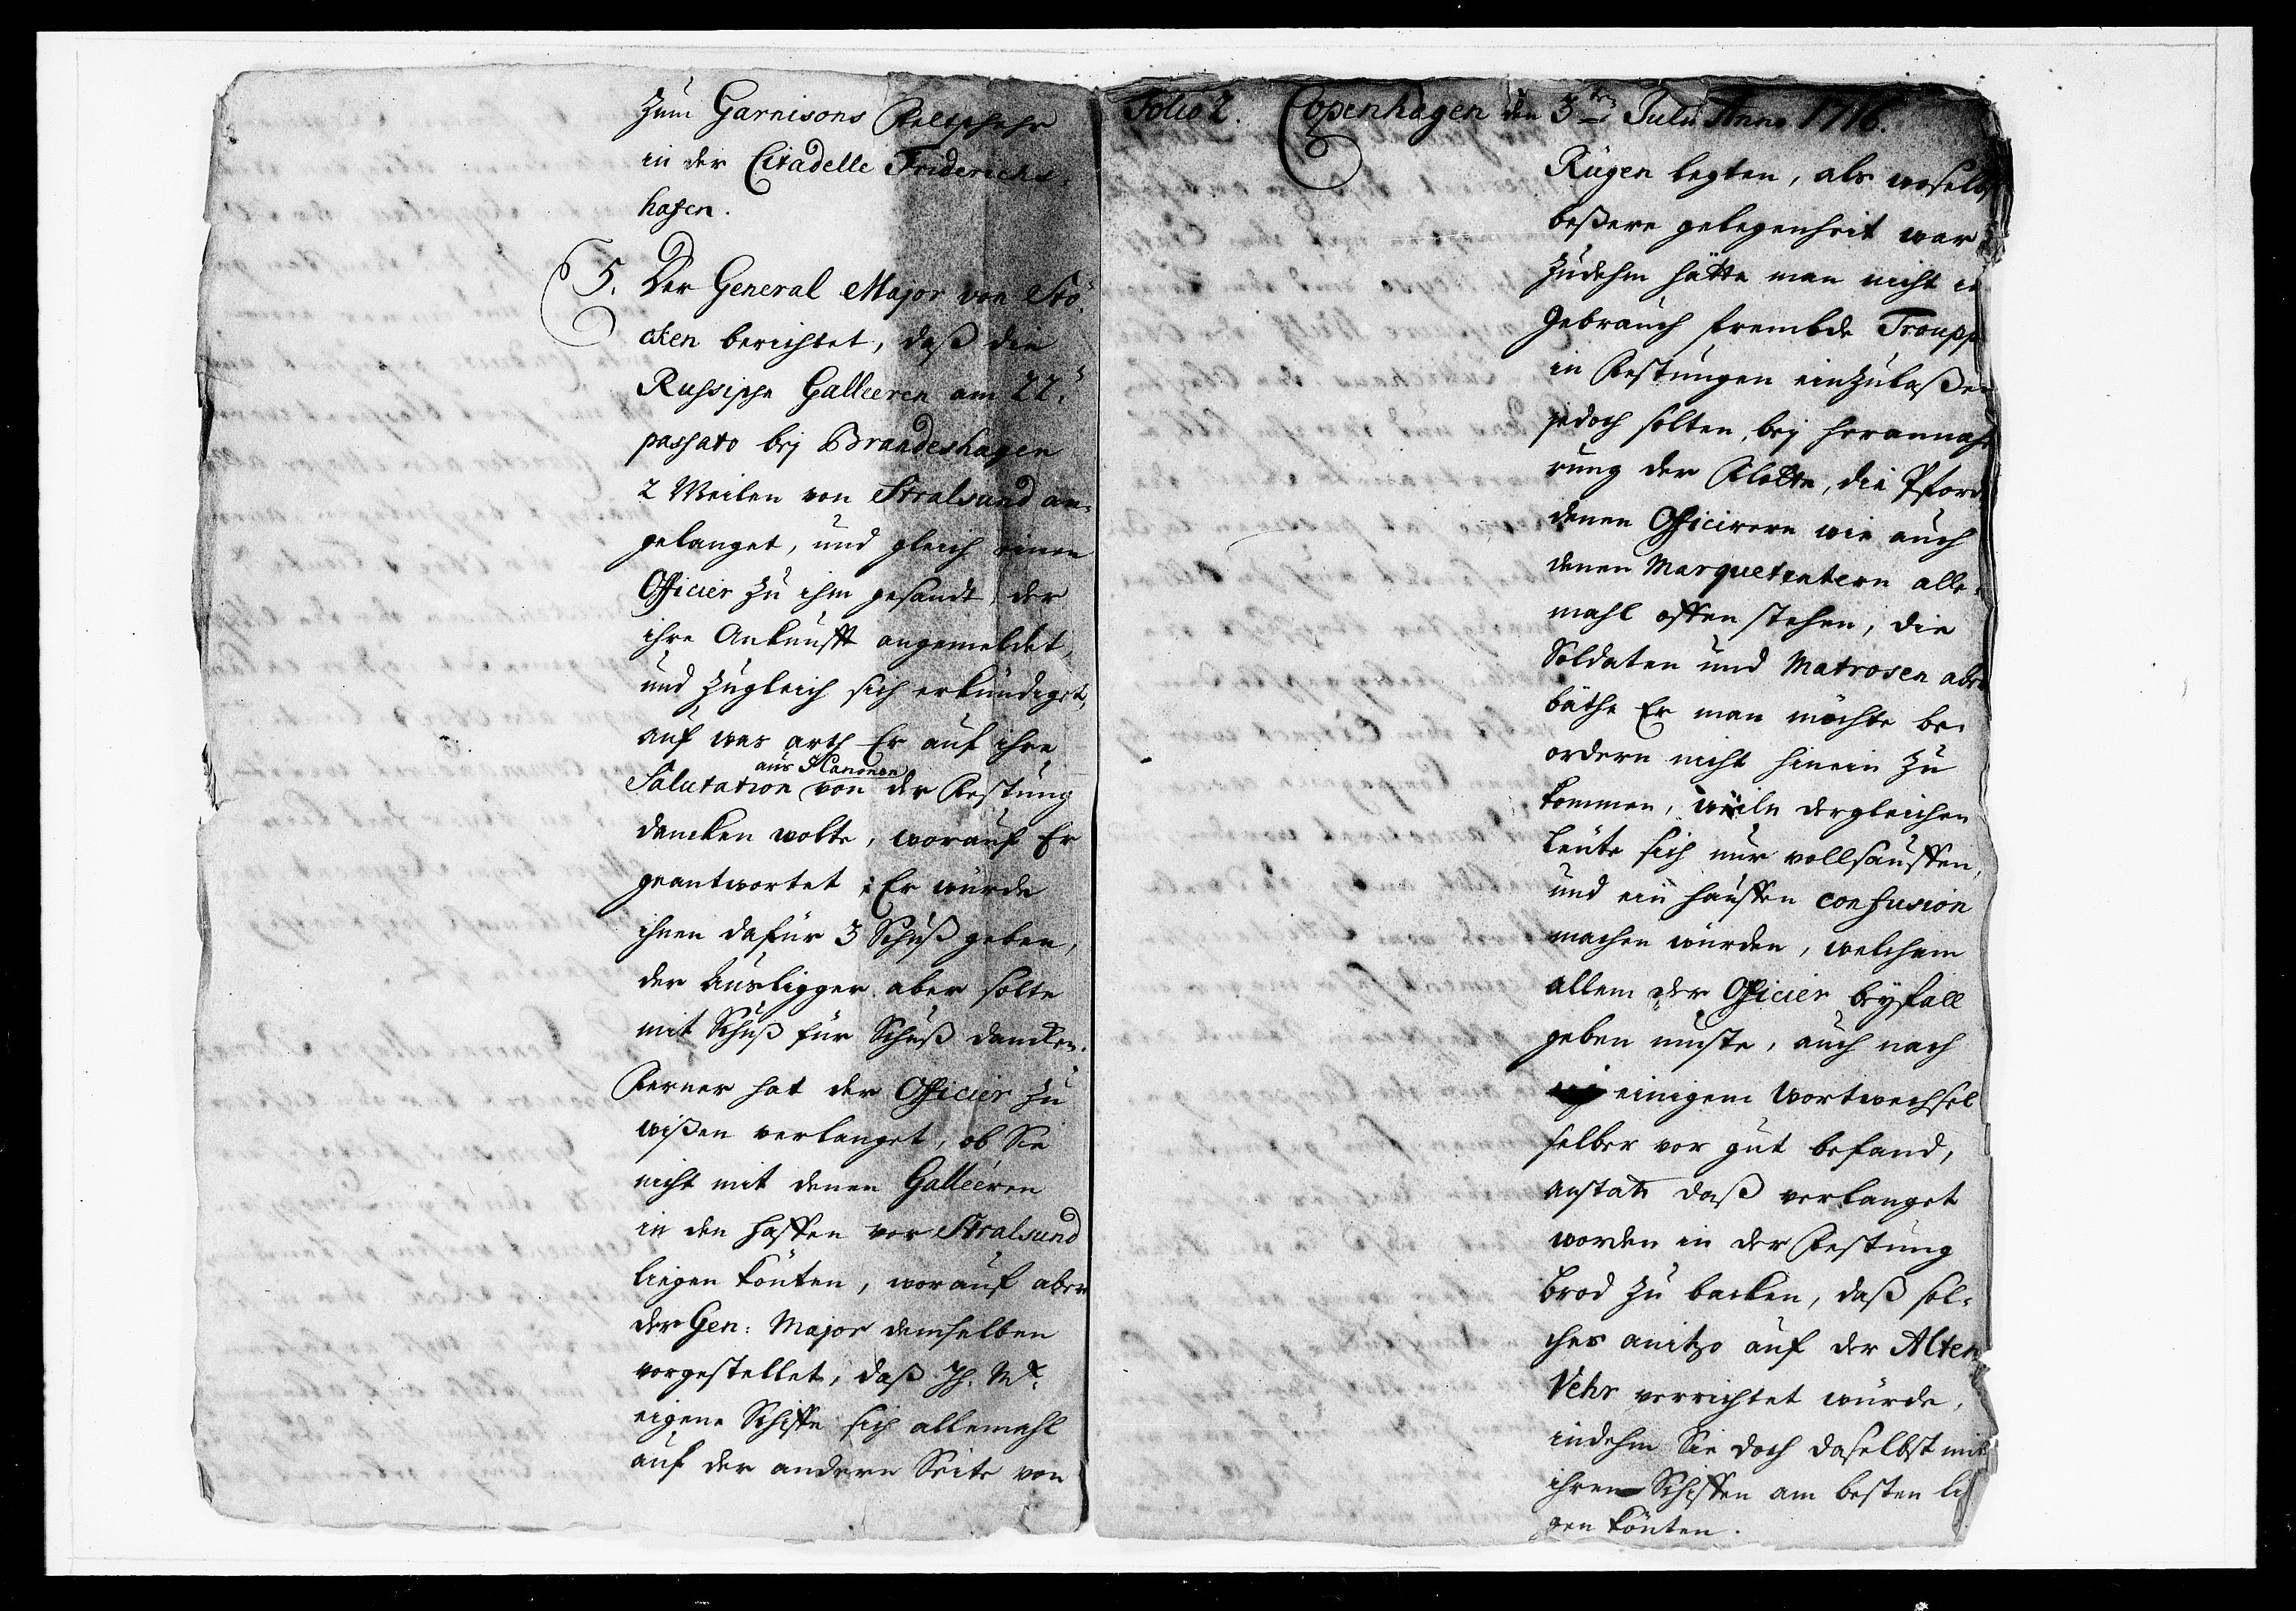 zum Garnisons Feltscheer
in der Citadelle Friderichs-
hafen.
5. Der General Major von Stö-
cken berichtet, daß die
Russische Galleeren am 22.
passato bey Brandeshagen
2 Meilen von Stralsund an-
gelanget, und gleich einen
Officier zu ihm gesandt, der
ihre Ankunfft angemeldet,
und zugleich sich erkündiget,
auf was arth Er auf ihre
aus Kanonen
Salutation von der Festung
dancken wolte, worauf Er
geantwortet: Er würde
ihnen dafür 3 Schuß geben,
der Ausligger aber solte
mit Schuß für Schuß dancken.
Ferner hat der Officier zu
wißen verlanget, ob Sie
nicht mit denen Galleeren
in den Haffen vor Stralsund
liegen könten, worauf aber
der Gen: Major demselben
vorgestellet, daß Ih. Mt.
eigene Schiffe sich allemahl
auf der andern Seite von
Folio 2. Copenhagen den 3ten Julii Anno 1716.
Rügen legten, als woselbst
beßere gelegenheit war
zudehm hätte man nicht in
Gebrauch frembde Troupp
in Festungen einzulaßen
jedoch solten, bey herannah-
rung der Flotte, die Pfort
denen Officirern wie auch
denen Marquetentern alle-
mahl offen stehen, die
Soldaten und Matrosen aber
bäthe Er man möchte be-
ordern nicht hinein zu
kommen, weiln dergleichen
Leute sich nur vollsauffen,
und ein hauffen confusion
machen würden, welchem
allem der Officier beyfall
geben muste, auch nach
einigem Wortwechsel
selber vor gut befand,
anstatt daß verlanget
worden in der Festung
Brod zu backen, daß sol-
ches anitzo auf der Alten
Vehr verrichtet würde,
indehm Sie doch daselbst mit
ihren Schiffen am besten li-
gen könten.